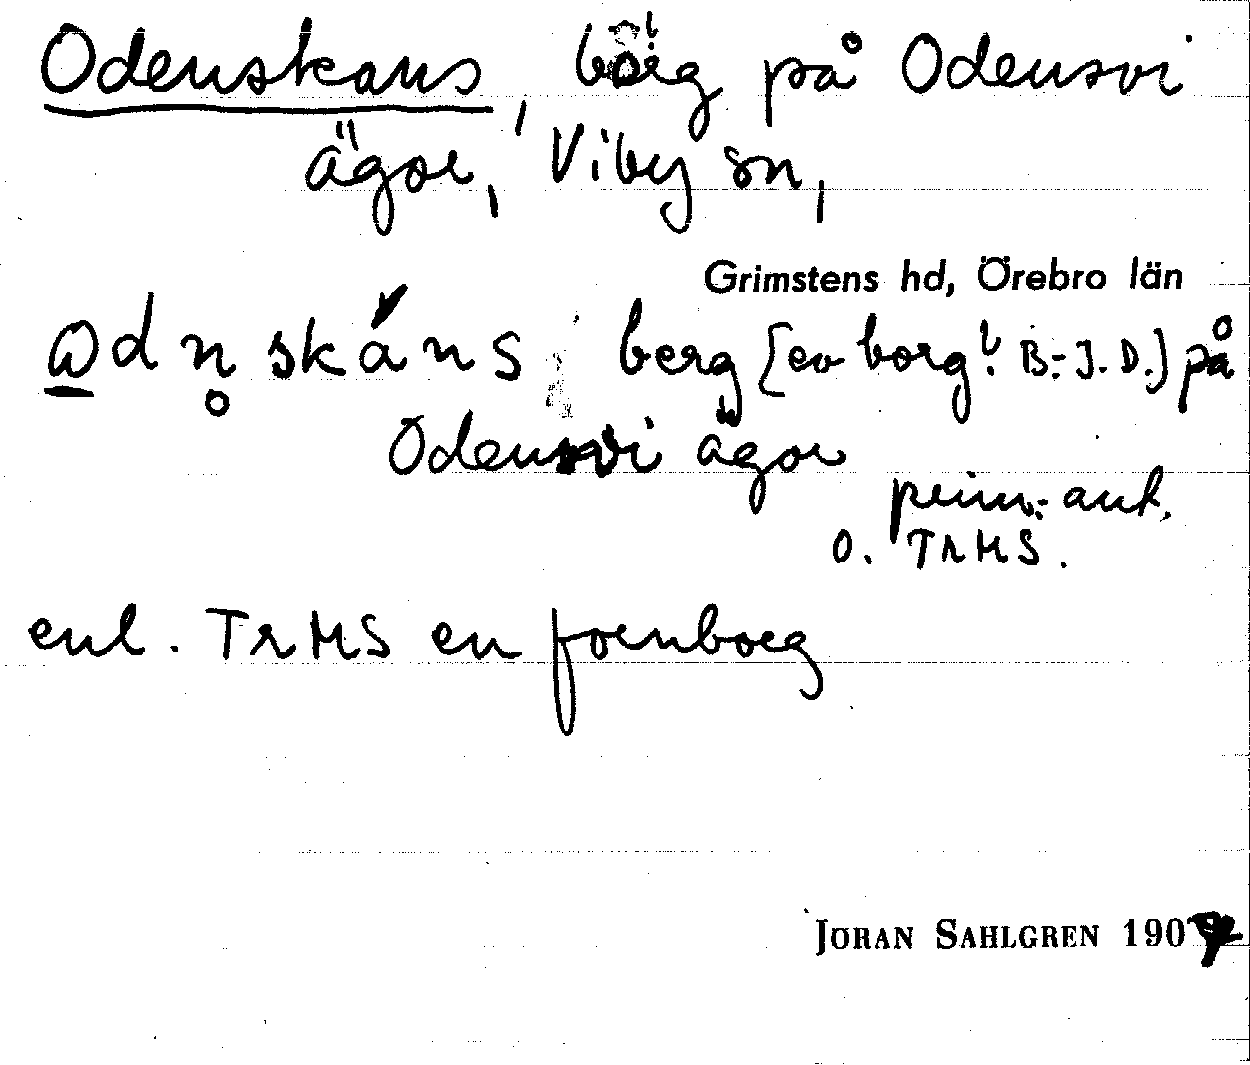 Odenskans, borg! på Odensvi
ägor, Viby sn,
Grimstens hd, Örebro län
ωdn̥skáns berg [ev borg! B.-J. D.] på
Odensvi ägor
prim.-ant.
o. TrHS.
enl. TrHS en fornborg
JÖRAN SAHLGREN 1907